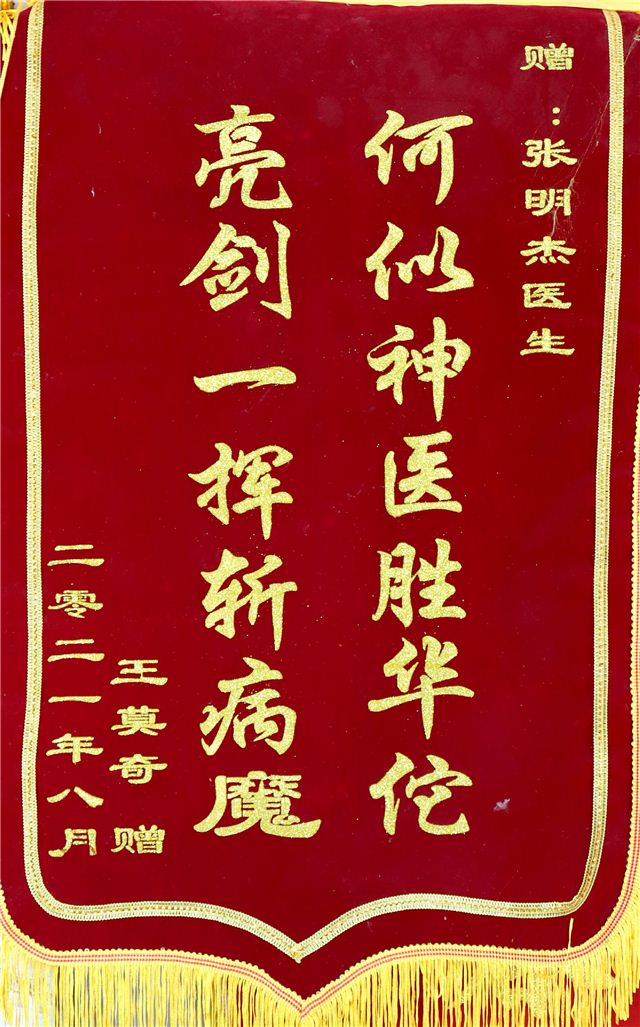 赠：张明杰医生
何似神医胜华佗
亮剑一挥斩病魔
王莫奇 赠
二零二一年八月